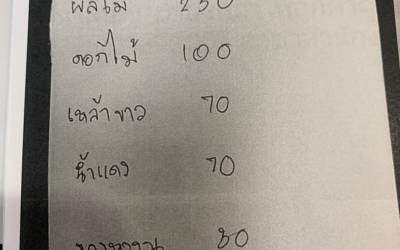 ผลไม้ 250
ดอกไม้ 100
เหล้าขาว 70
น้ำแดง 70
80